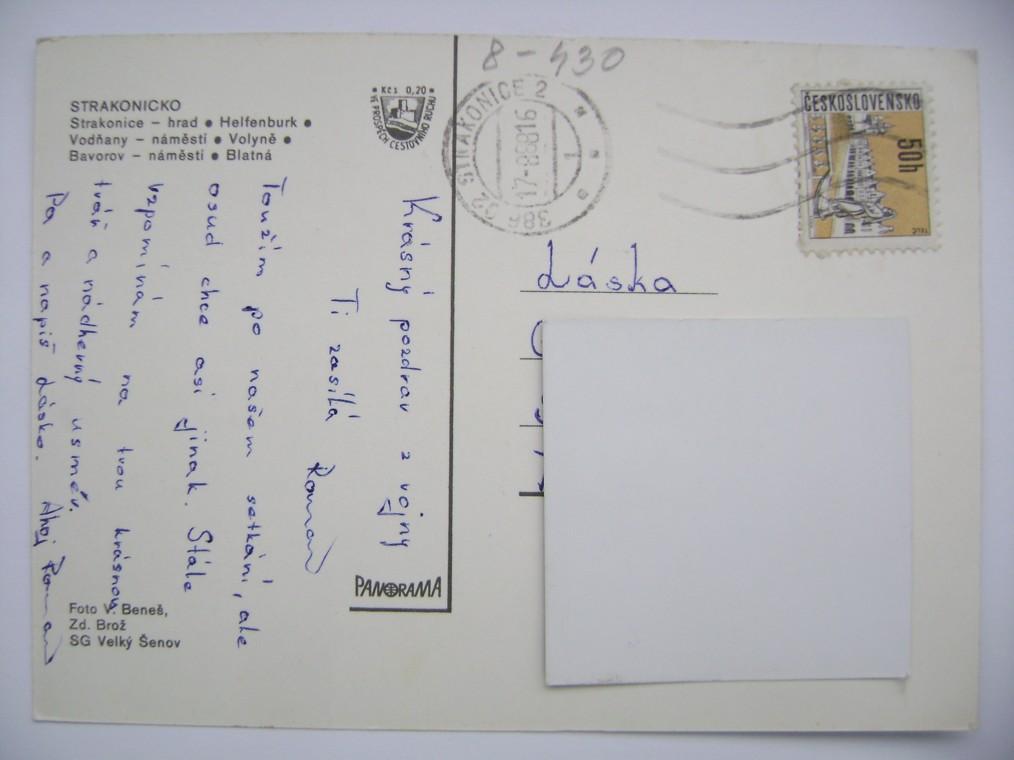 8-430
STRAKONICKO
Strakonice – hrad ● Helfenburk ●
Vodňany – náměstí ● Volyně ●
Bavorov – náměstí ● Blatná
Kčs 0,20
VE PROSPĚCH CESTOVNÍHO RUCHU
386 02 STRAKONICE 2
17-8 88 16
1
ČESKOSLOVENSKO
50h
TELČ
Krásný pozdrav z vojny
Ti zasílá
Roman
Toužím po našem setkání, ale
osud chce asi jinak. Stále
vzpomínám na tvou krásnou
tvář a nádherný usměv.
Pa a napiš Lásko. Ahoj Roman
Láska
PANORAMA
Foto V. Beneš,
Zd. Brož
SG Velký Šenov